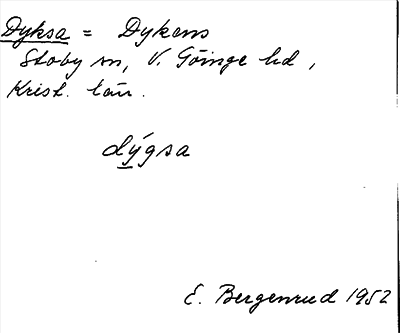 Dyksa = Dykens
Stoby sn, V. Göinge hd,
Krist. län.
dýgsa
E. Bergenrud 1952